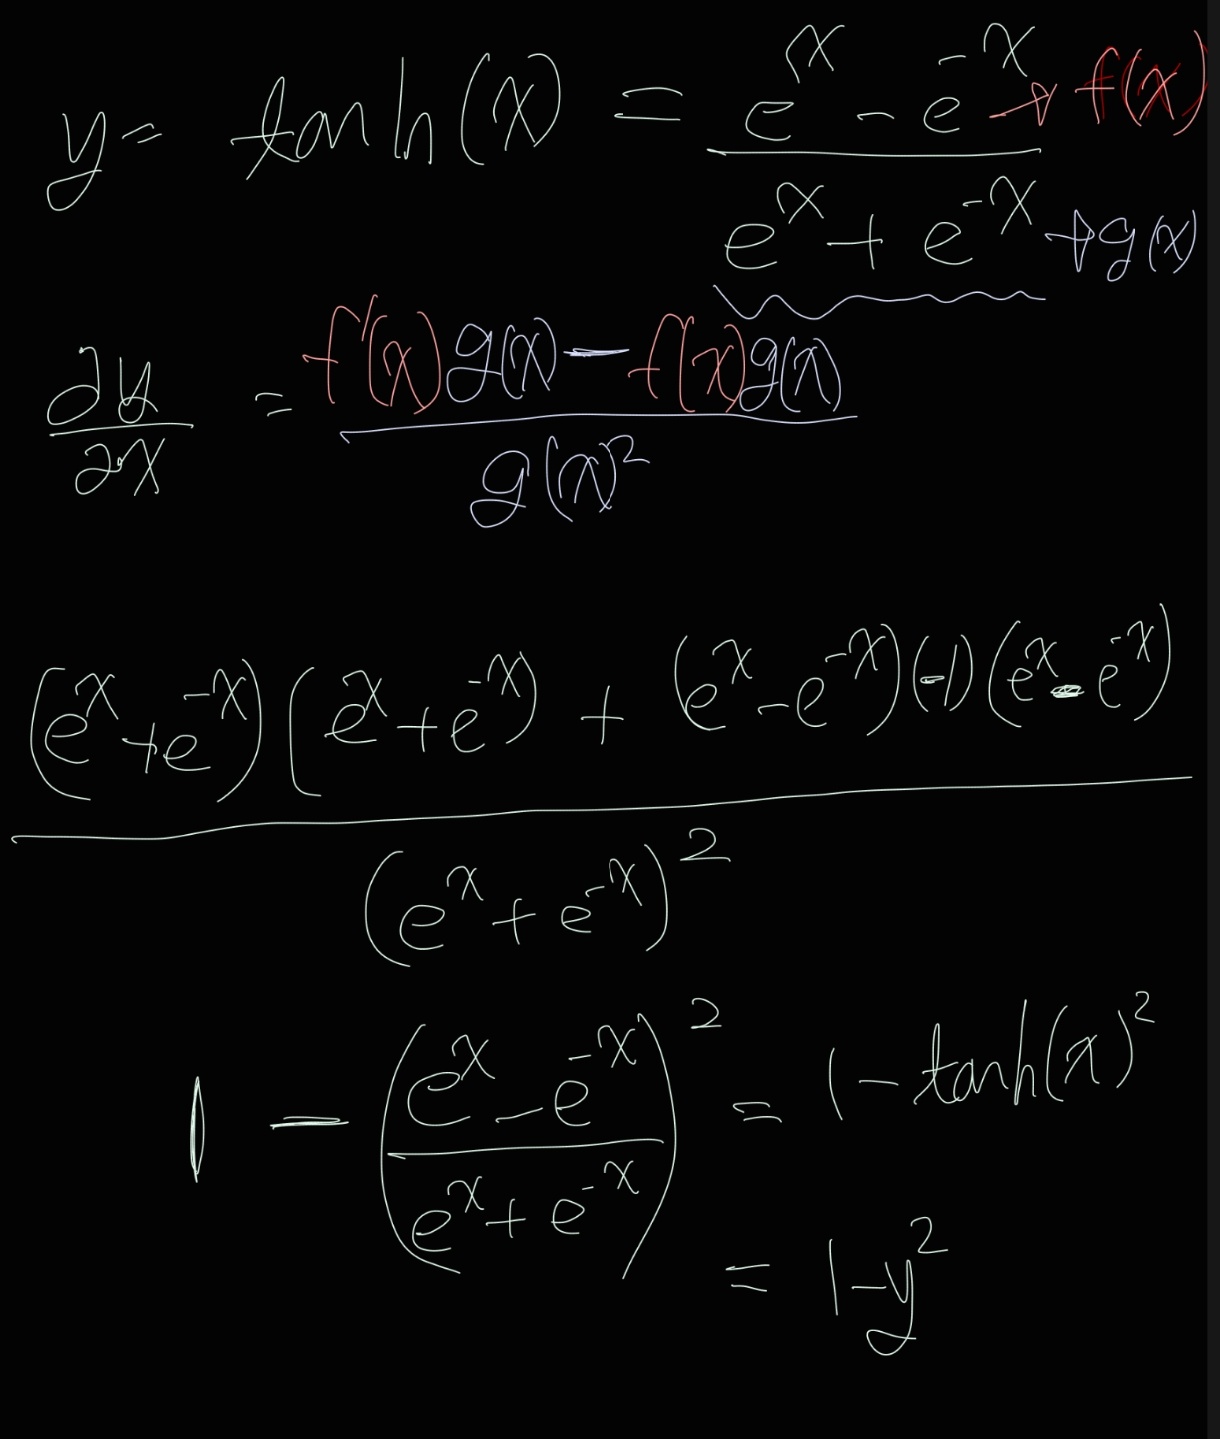 y = tanh(x) = (e^x - e^-x) / (e^x + e^-x) → f(x) → g(x)
∂y/∂x = (f'(x)g(x) - f(x)g(x)) / g(x)^2
((e^x + e^-x)(e^x + e^-x) + (e^x - e^-x)(-1)(e^x - e^-x)) / (e^x + e^-x)^2
1 - ((e^x - e^-x) / (e^x + e^-x))^2 = 1 - tanh(x)^2
= 1 - y^2